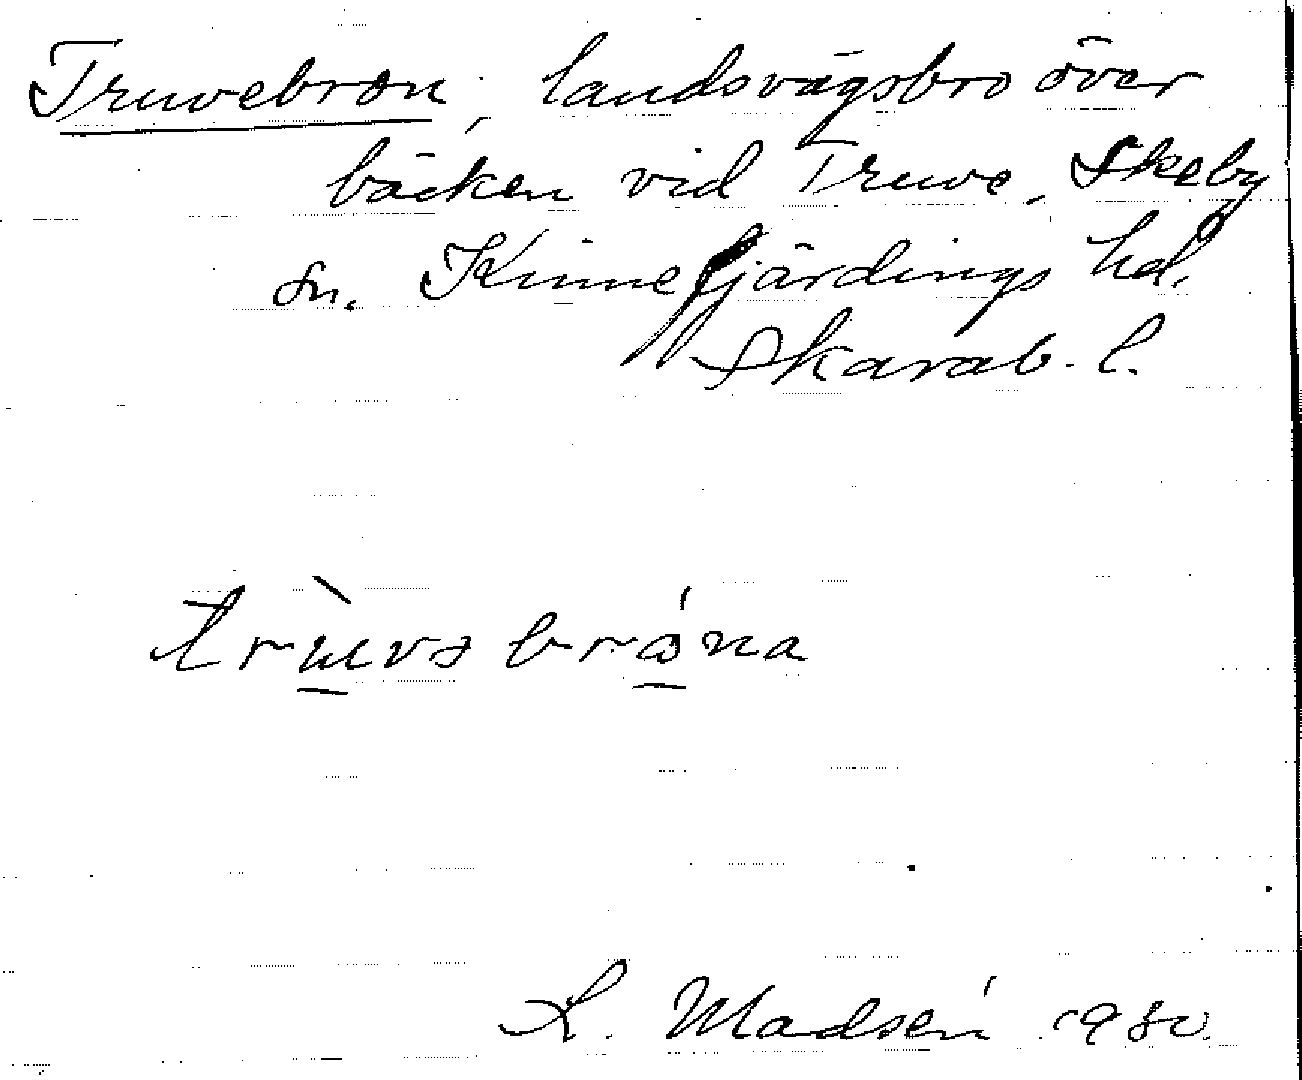 Truvebron, landsvägsbro över
bäcken vid Truve, Skeby
sn. Kinnefjärdings hd.
Skarab. l.
trùvəbrǻna
L. Madsén 1980.